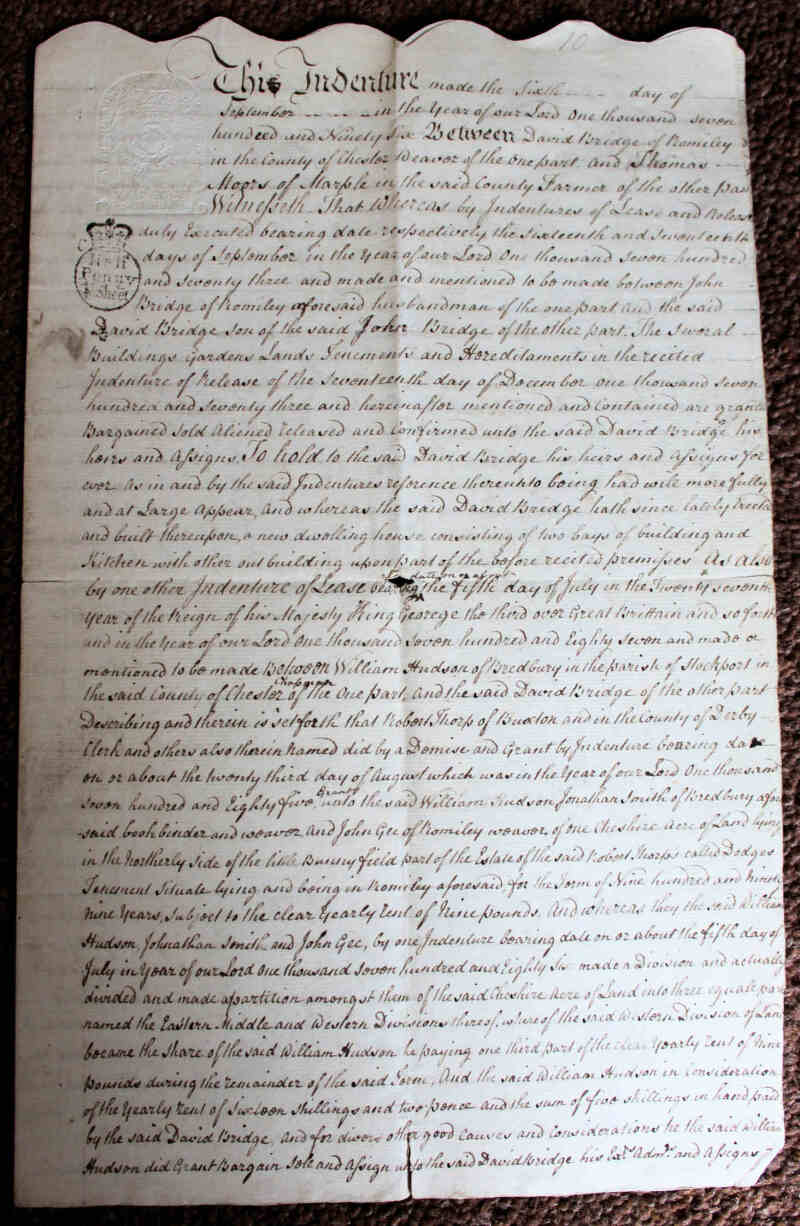 10
This Indenture made the Sixth day of
September in the Year of our Lord One thousand seven
hundred and Ninety Six Between David Bridge of Romiley
in the County of Chester Weavor of the One part And Thomas
Moors of Marple in the said County Farmer of the other Part
Witnesseth That Whereas by Indentures of Lease and Release
duly Executed bearing date respectively the Sixteenth and Seventeenth
days of September in the Year of our Lord One thousand seven hundred
and Seventy three and made and mentioned to be made between John
Bridge of Romiley aforesaid husbandman of the one part And the said
David Bridge son of the said John Bridge of the other part. The Several
Buildings Gardens Lands Tenements and Hereditaments in the recited
Indenture of Release of the Seventeenth day of December One thousand seven
hundred and seventy three and hereinafter mentioned and Contained are granted
Bargained Sold Aliened released and Confirmed unto the said David Bridge his
heirs and Assigns, To hold to the said David Bridge his heirs and Assigns for
ever As in and by the said Indentures reference thereunto being had will more fully
and at Large Appear, And whereas the said David Bridge hath since lately Erected
and built thereupon, a new dwelling house consisting of two bays of building and
Kitchen with other out building upon part of the before recited premisses As also
by one other Indenture of Lease bearing date on or about the fifth day of July in the Twenty seventh
Year of the Reign of his Majesty King George the third over Great Brittain and so forth
and in the Year of our Lord One thousand Seven hundred and Eighty Seven and made or
mentioned to be made Between William Hudson of Bredbury in the parish of Stockport in
the said County of Chester of the One part, And the said David Bridge of the other part
Describing and therein is set forth that Robert Thorp of Buxton and in the County of Derby
Clerk and others also therein Named did by a Demise and Grant by Indenture bearing date
on or about the twenty third day of August which was in the Year of our Lord One thousand
Seven hundred and Eighty five, Grant unto the said William Hudson Jonathan Smith of Bredbury afore
-said book binder and weaver And John Gee of Romiley weaver, of one Cheshire Acre of Land lying
in the Northerly Side of the little Bunny field part of the Estate of the said Robert Thorps called Dodges
Tenement Situate lying and being in Romiley aforesaid for the Term of Nine hundred and Ninety
Nine Years, Subject to the clear Yearly rent of Nine pounds. And whereas they the said William
Hudson, Johnathan Smith and John Gee, by one Indenture bearing date on or about the fifth day of
July in Year of our Lord One thousand Seven hundred and Eighty Six made a Division and actually
divided and made a partition amongst them of the said Cheshire Acre of Land into three equale parts
named the Eastern Middle and Western Divisions thereof, of the said Western Division of Land
became the Share of the said William Hudson he paying one third part of the clear Yearly rent of Nine
pounds during the remainder of the said Term, And the said William Hudson in Consideration
of the Yearly rent of Sixteen Shillings and two pence and the sum of five shillings in hand paid
by the said David Bridge, And for divers other good Causes and Considerations he the said William
Hudson did Grant Bargain Sole and Assign unto the said David Bridge his Exrs Admrs and Assigns